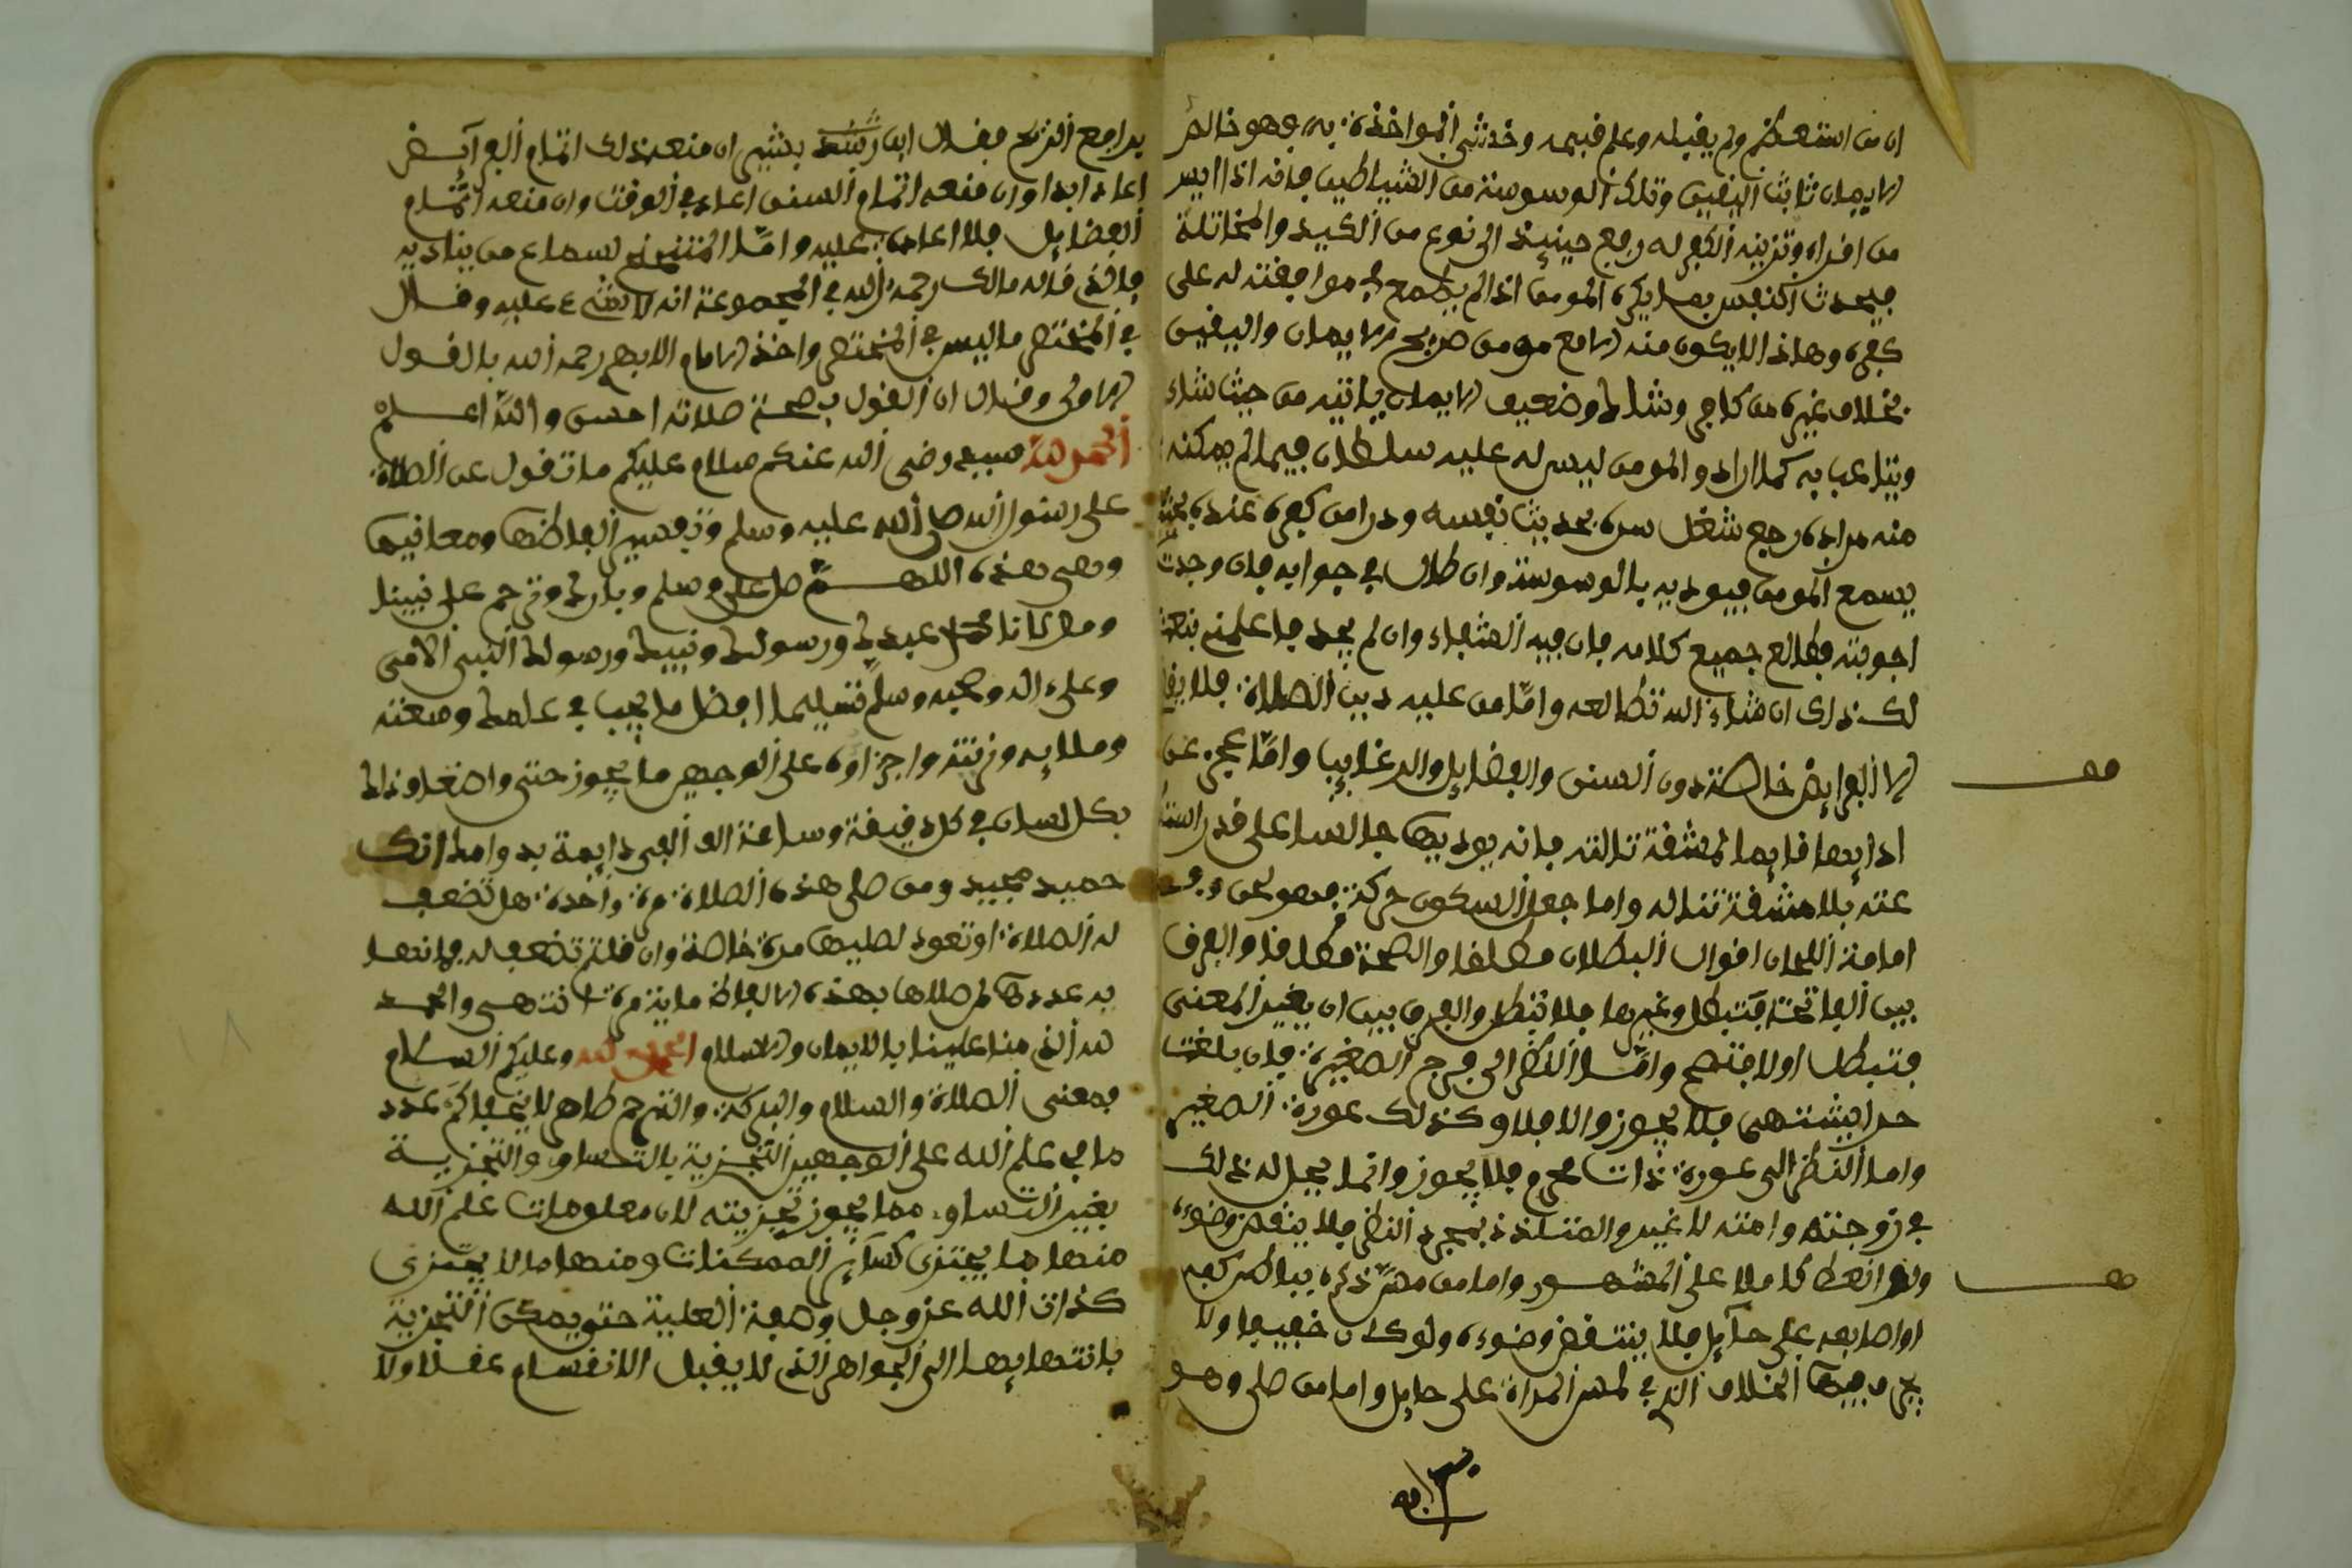 ان من استعظم ولم يقبله وعلم قبحه وخشي المواخذة به فهو خالص
الايمان ثابت اليقين وتلك الوسوسة من الشياطين فانه اذا ايس
من اغراءه وتزيينه الكفر له رجع حينيذ الى نوع من الكيد والمخاتلة
فيحدث النفس بما يكره المومن اذا لم يطمع في موافقته له على
كفره وهاذا لا يكون منه الا مع مومن صريح الايمان واليقين
بخلاف غيره من كافر وشاك وضعيف الايمان ياتيه من حيث شاء
ويتلاعب به كما اراد والمومن ليس له عليه سلطان فيما لم يمكنه
منه مراده رجع شغل سره بحديث نفسه ودرا من كفره عنده بحيث
يسمع المومن فيوديه بالوسوسة وان طال في جوابه فان وجدت
اجوبته فطالع جميع كلامه فان فيه الشفاء وان لم تجد فاعلمني نبعث
لك ذلك ان شاء الله تطالعه واما من عليه دين الصلاة فلا
الا الفرايض خاصة دون السنن والفضايل والرغايب واما عجز عن
ادايها قايما لمشقة تنالته فانه يوديها جالسا على قدر
عنه بلا مشقة تناله واما جعل السكون حركة فهو لحن وفي
امامة اللحان اقوال البطلان مطلقا والصحة مطلقا والفرق
بين الفاتحة فتبطل وغيرها فلا تبطل والفرق بين ان يغير المعنى
فتبطل اولا فتصح واما النظر الى فرج الصغيرة فان بلغت
حدا يشتهى فلا يجوز والا فلا وكذلك عورة الصغير
واما النظر الى عورة ذات محرم فلا يجوز وانما يحل له ذلك
في زوجته وامته لا غير والمتلذذ بمجرد النظر فلا ينقض وضوءه
ولو انعظ كاملا على المشهور واما من مس ذكره بباطن كفه
او اصابعه على حايل فلا ينتقض وضوءه ولو كان خفيفا ولا
يجري فيها الخلاف الذي في لمس المراة على حايل واما من صلى وهو
يدافع الريح فقال ابن بشير ان منعه ذلك اتمام الفرايض
اعاد ابدا وان منعه اتمام السنن اعاد في الوقت وان منعه اتمام
الفضايل فلا اعادة عليه واما المتنحنح لسماع من يناديه
فالذي قاله مالك رحمه الله في المجموعة انه لا شيء عليه وقال
في المختصر ما ليس في المختصر واخذ الامام الابهري رحمه الله بالقول
الاول وقال ان القول بصحة صلاته احسن والله اعلم
الحمد لله سيدي رضي الله عنكم سلام عليكم ما تقول عن الصلاة
على رسول الله صلى الله عليه وسلم وتفسير الفاظها ومعانيها
وهي هذه اللهم صل على وسلم وبارك وترحم على نبينا
ومولانا محمد عبدك ورسولك ونبيك ورسولك النبي الامي
وعلى اله وصحبه وسلم تسليما افضل ما يجب في علمك وصفته
وملايه وزنته واجزاؤه على الوجهين ما يجوز حتى واضعاف ذلك
بكل لسان في كل دقيقة وساعة الف الفي دايمة بدوامك انك
حميد مجيد ومن صلى هذه الصلاة مرة واحدة هل تضعف
له الصلاة او تعود لمصليها مرة خاصة وان قلتم تضعف له فما نصها
به عددها لمن صلاها بهذه الالفاظ ماية مرة انتهى والحمد
لله الذي منا علينا بالايمان والاسلام الحمد لله وعليكم السلام
فمعنى الصلاة والسلام والبركة والترحم ظاهر لا يخفاكم عدد
ما في علم الله على الوجهين التجزية بالتساوي والتجزية
بغير التساوي مما يجوز تجزيته لان معلومات علم الله
منها ما يجتزى كساير الممكنات ومنها ما لا يجتزى
كذات الله عز وجل وصفة العلية حتى يمكن التجزية
بانتهايها الى الجواهر الذي لا يقبل الانقسام عقلا ولا